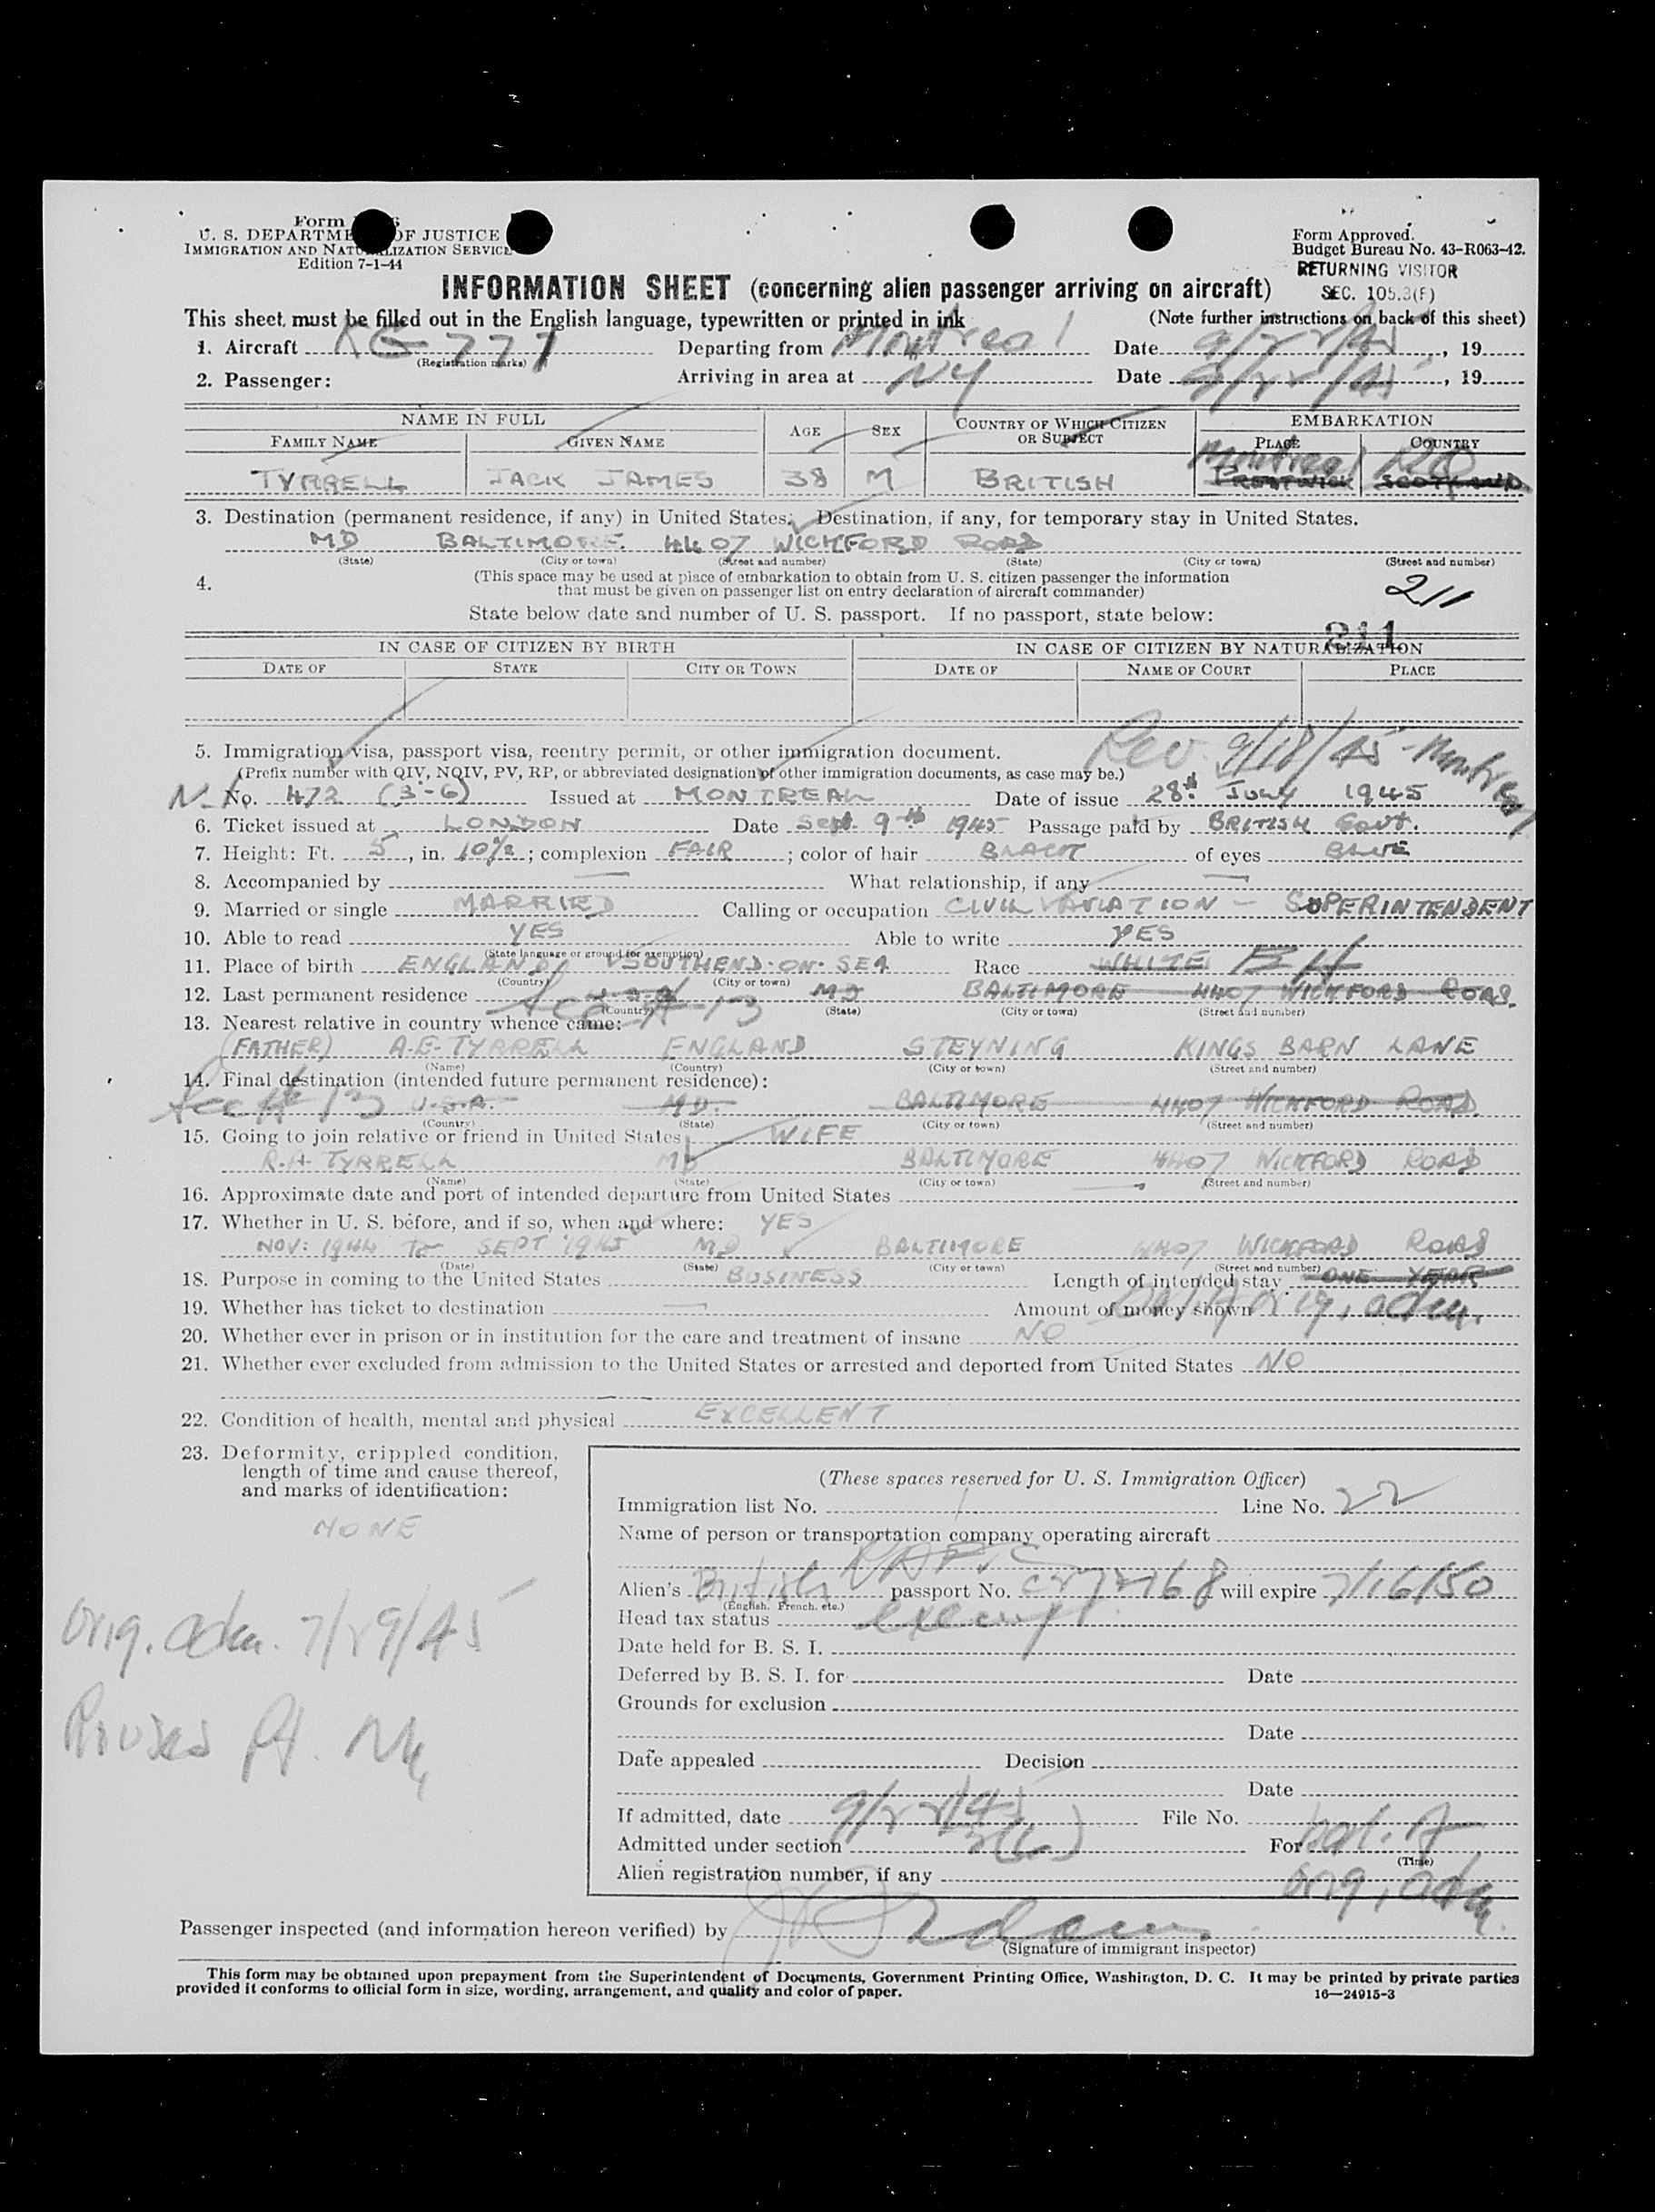 Form
U. S. DEPARTME OF JUSTICE
IMMIGRATION AND NATURALIZATION SERVICE
Edition 7-1-44
Form Approved.
Budget Bureau No. 43-R063-42.
RETURNING VISITOR
SEC. 105.3(F)
INFORMATION SHEET (concerning alien passenger arriving on aircraft)
This sheet must be filled out in the English language, typewritten or printed in ink (Note further instructions on back of this sheet)
1. Aircraft KG-777 Departing from Montreal Date 9/22/45, 19
(Registration marks)
2. Passenger: Arriving in area at NY Date 9/22/45, 19
NAME IN FULL AGE SEX COUNTRY OF WHICH CITIZEN OR SUBJECT EMBARKATION
FAMILY NAME GIVEN NAME PLACE COUNTRY
Montreal
TYRRELL JACK JAMES 38 M BRITISH PRESTWICK SCOTLAND
3. Destination (permanent residence, if any) in United States. Destination, if any, for temporary stay in United States.
MD BALTIMORE. 4407 WICKFORD ROAD
(State) (City or town) (Street and number) (State) (City or town) (Street and number)
4. (This space may be used at place of embarkation to obtain from U. S. citizen passenger the information
that must be given on passenger list on entry declaration of aircraft commander)
211
State below date and number of U. S. passport. If no passport, state below:
211
IN CASE OF CITIZEN BY BIRTH IN CASE OF CITIZEN BY NATURALIZATION
DATE OF STATE CITY OR TOWN DATE OF NAME OF COURT PLACE
Rev. 9/18/45 - Montreal
5. Immigration visa, passport visa, reentry permit, or other immigration document.
(Prefix number with QIV, NQIV, PV, RP, or abbreviated designation of other immigration documents, as case may be.)
No. 472 (3-6) Issued at MONTREAL Date of issue 28th JULY 1945
6. Ticket issued at LONDON Date Sept. 9th 1945 Passage paid by BRITISH GOVT.
7. Height: Ft. 5, in. 10½; complexion FAIR; color of hair BLACK of eyes BLUE
8. Accompanied by — What relationship, if any —
9. Married or single MARRIED Calling or occupation CIVIL AVIATION - SUPERINTENDENT
10. Able to read YES Able to write YES
(State language or ground for exemption)
11. Place of birth ENGLAND SOUTHEND-ON-SEA Race WHITE
(Country) (City or town)
12. Last permanent residence MD BALTIMORE 4407 WICKFORD ROAD.
(Country) (State) (City or town) (Street and number)
13. Nearest relative in country whence came:
(FATHER) A.E. TYRRELL ENGLAND STEYNING KINGS BARN LANE
(Name) (Country) (City or town) (Street and number)
14. Final destination (intended future permanent residence):
U.S.A. MD. BALTIMORE 4407 WICKFORD ROAD
(Country) (State) (City or town) (Street and number)
15. Going to join relative or friend in United States WIFE
R.A. TYRRELL MD BALTIMORE 4407 WICKFORD ROAD
(Name) (State) (City or town) (Street and number)
16. Approximate date and port of intended departure from United States —
17. Whether in U. S. before, and if so, when and where: YES
NOV: 1944 To SEPT 1945 MD BALTIMORE 4407 WICKFORD ROAD
(Date) (State) (City or town) (Street and number)
18. Purpose in coming to the United States BUSINESS Length of intended stay ONE YEAR
19. Whether has ticket to destination — Amount of money shown
bal. of orig. adm.
20. Whether ever in prison or in institution for the care and treatment of insane NO
21. Whether ever excluded from admission to the United States or arrested and deported from United States NO
22. Condition of health, mental and physical EXCELLENT
23. Deformity, crippled condition,
length of time and cause thereof,
and marks of identification:
NONE
orig. adm. 7/29/45
(These spaces reserved for U. S. Immigration Officer)
Immigration list No. Line No. 22
Name of person or transportation company operating aircraft
Alien's British passport No. will expire 7/16/50
(English, French, etc.)
Head tax status exempt
Date held for B. S. I.
Deferred by B. S. I. for Date
Grounds for exclusion
Date
Date appealed Decision
Date
If admitted, date 9/22/45 File No.
Admitted under section For bal. of
(Time)
Alien registration number, if any orig. adm.
Passenger inspected (and information hereon verified) by
(Signature of immigrant inspector)
This form may be obtained upon prepayment from the Superintendent of Documents, Government Printing Office, Washington, D. C. It may be printed by private parties
provided it conforms to official form in size, wording, arrangement, and quality and color of paper. 16—24915-3